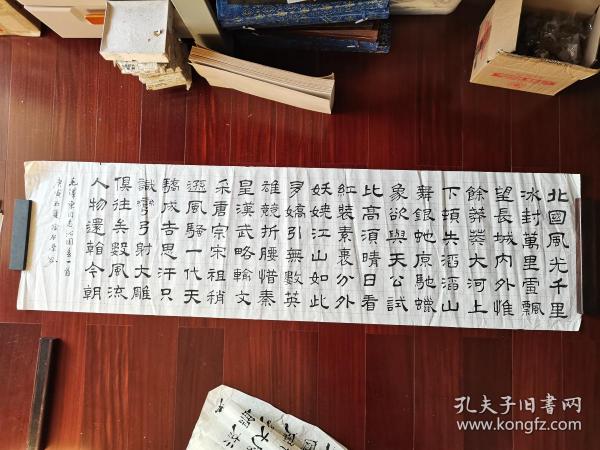 北國風光千里
冰封萬里雪飄
望長城内外惟
餘莽莽大河上
下頓失滔滔山
舞銀虵原馳蠟
象欲與天公試
比高須晴日看
紅裝素裹分外
妖嬈江山如此
多嬌引無數英
雄競折腰惜秦
皇漢武略輸文
采唐宗宋祖稍
遜風騷一代天
驕成吉思汗只
識彎弓射大雕
俱往矣數風流
人物還看今朝
毛澤東同志沁園春一首
孔夫子旧书网
www.kongfz.com